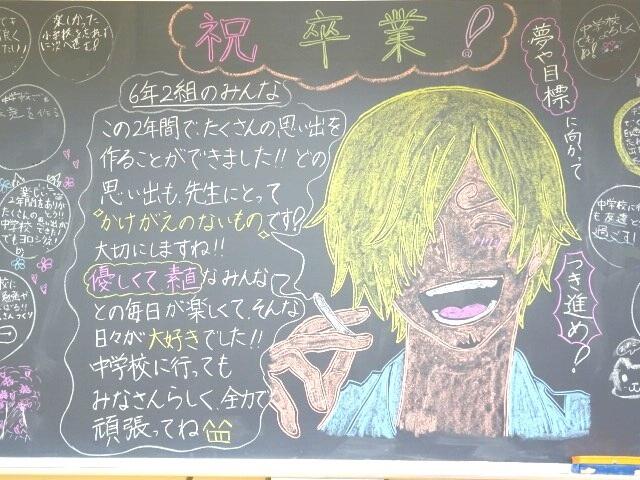 祝 卒業!
6年2組のみんな
この2年間で、たくさんの思い出を
作ることができました!! どの
思い出も、先生にとって
かけがえのないものです!
大切にしますね!!
優しくて素直なみんな
との毎日が楽しくて、そんな
日々が大好きでした!!
中学校に行っても
みなさんらしく、全力で
頑張ってね
夢や目標
に向かって
つき進め!
楽しかった
小学校
中学校でも
楽しい
2年間をあり
たくさんの思い出が
中学校
でもヨロシク!
中学校に
も友達と
過ごす!
中学校